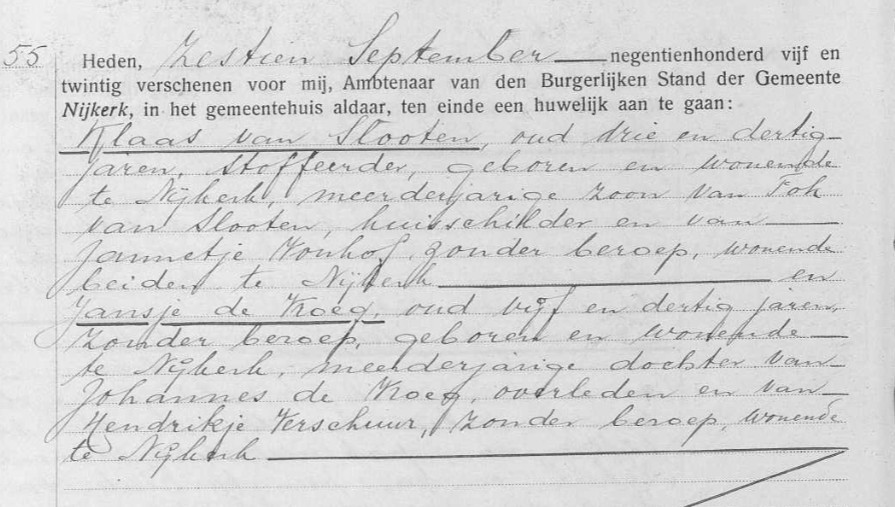 55
Heden, Zestien September negentienhonderd vijf en
twintig verschenen voor mij, Ambtenaar van den Burgerlijken Stand der Gemeente
Nijkerk, in het gemeentehuis aldaar, ten einde een huwelijk aan te gaan:
Klaas van Slooten, oud drie en dertig
jaren, stoffeerder, geboren en wonende
te Nijkerk, meerderjarige zoon van Foh
van Slooten, huisschilder en van
Jannetje Vonhof, zonder beroep, wonende
beiden te Nijkerk en
Jansje de Kroeg, oud vijf en dertig jaren,
zonder beroep, geboren en wonende
te Nijkerk, meerderjarige dochter van
Johannes de Kroeg, overleden en van
Hendrikje Verschuur, zonder beroep, wonende
te Nijkerk